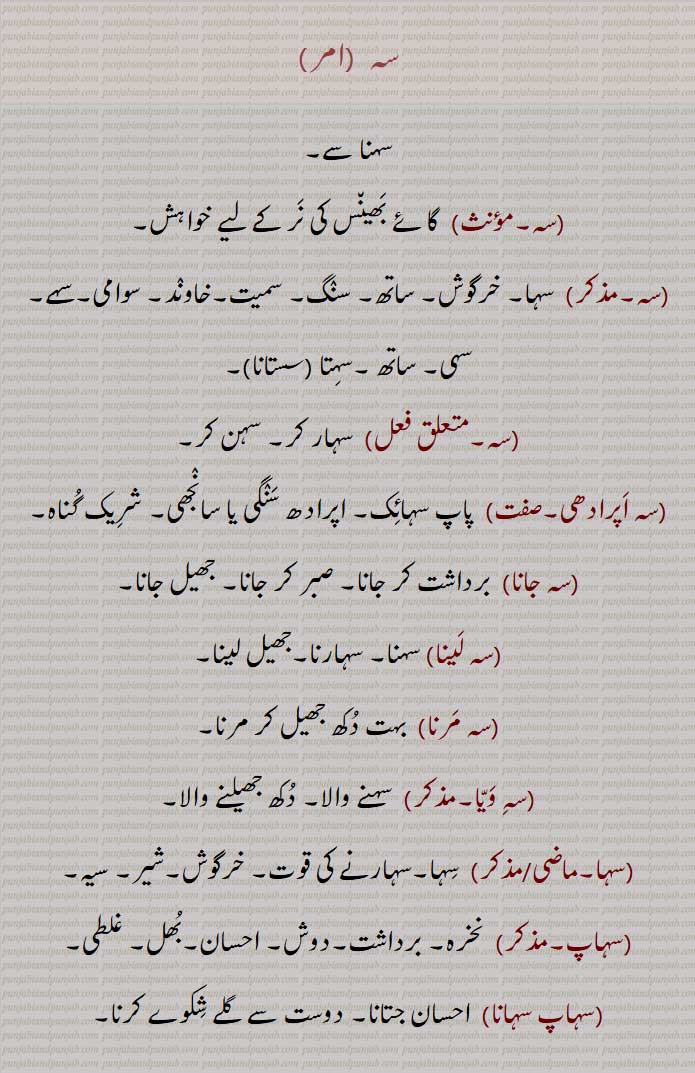 سہ (امر)
سہنا سے۔
(سہ۔مؤنث) گائے بَھینّس کی نَر کے لیے خواہش۔
(سہ۔مذکر) سہا۔ خرگوش۔ ساتھ۔ سنْگ۔ سمیت۔خاونْد۔ سوامی۔سہے۔
سہی۔ ساتھ ۔سہِتا (سستانا)۔
(سہ۔متعلق فعل) سہار کر۔ سہن کر۔
(سہ اَپرادھی۔صفت) پاپ سہائِک۔ اپرادھ سَنْگی یا سانْجھی۔ شرِیک گُناہ۔
(سہ جانا) برداشت کر جانا۔ صبر کر جانا۔ جھیل جانا۔
(سہ لَینا) سہنا۔ سہارنا۔جھیل لینا۔
(سہ مَرنا) بہت دُکھ جھیل کر مرنا۔
(سہِ وَیّا۔مذکر) سہنے والا۔ دُکھ جھیلنے والا۔
(سہا۔ماضی/مذکر) سِہا۔سہارنے کی قوت۔ خرگوش۔شیر۔ سیہ۔
(سہاپ۔مذکر) نخرہ۔ برداشت۔دوش۔ احسان۔بُھل۔ غلطی۔
(سہاپ سہانا) احسان جتانا۔ دوست سے گلے شِکوے کرنا۔